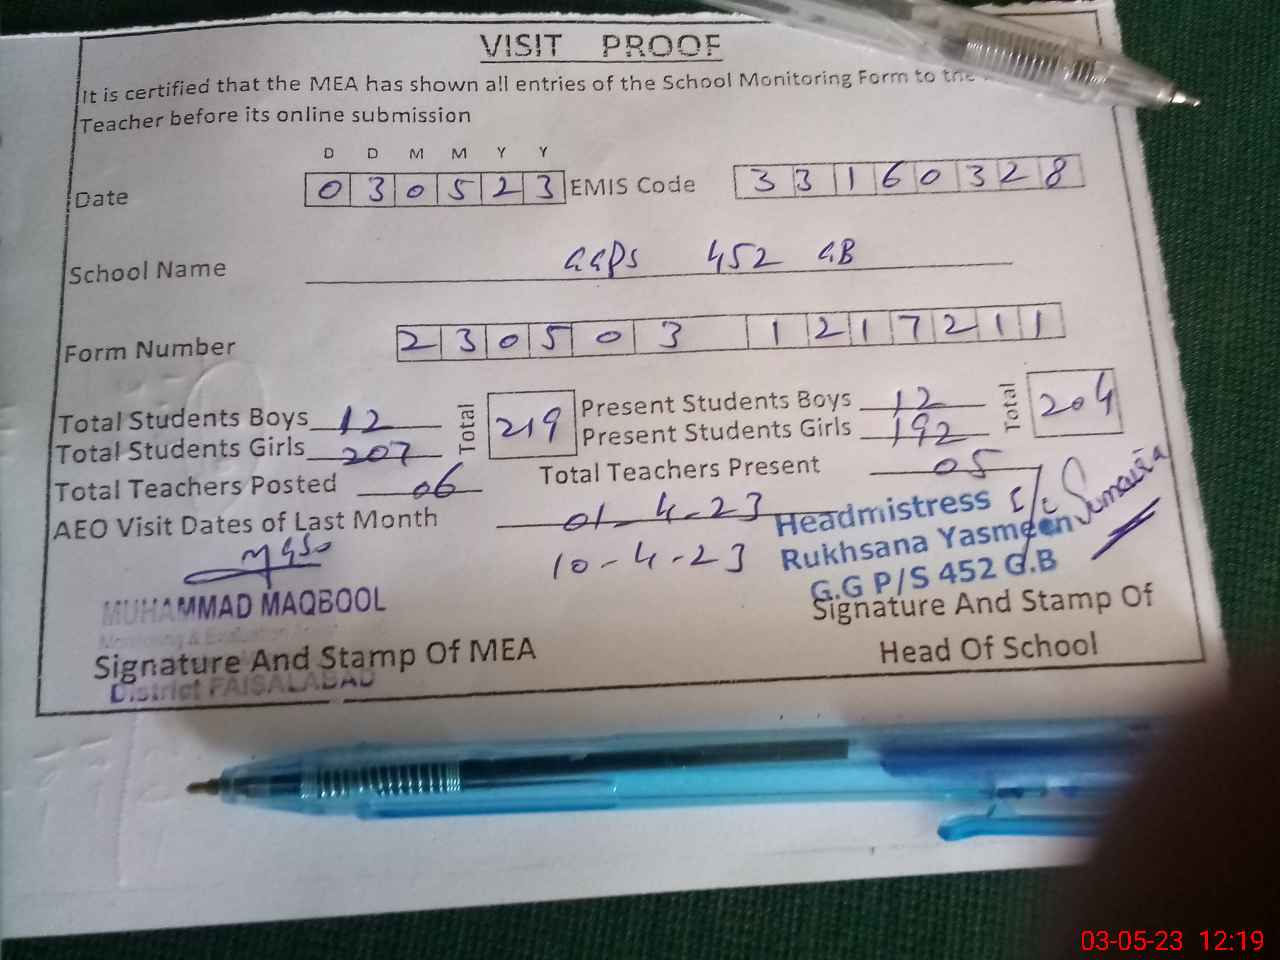 VISIT PROOF
It is certified that the MEA has shown all entries of the School Monitoring Form to the
Teacher before its online submission
D D M M Y Y
Date 0 3 0 5 2 3 EMIS Code 3 3 1 6 0 3 2 8
School Name GGPS 452 GB
Form Number 2 3 0 5 0 3 1 2 1 7 2 1 1
Total Students Boys 12 Total 219 Present Students Boys 12 Total 204
Total Students Girls 207 Present Students Girls 192
Total Teachers Posted 06 Total Teachers Present 05
AEO Visit Dates of Last Month 01-4-23
10-4-23
Headmistress I/C Sumaira
Rukhsana Yasmeen
G.G P/S 452 G.B
MUHAMMAD MAQBOOL
Monitoring & Evaluation
Signature And Stamp Of MEA
District FAISALABAD
Signature And Stamp Of
Head Of School
03-05-23 12:19